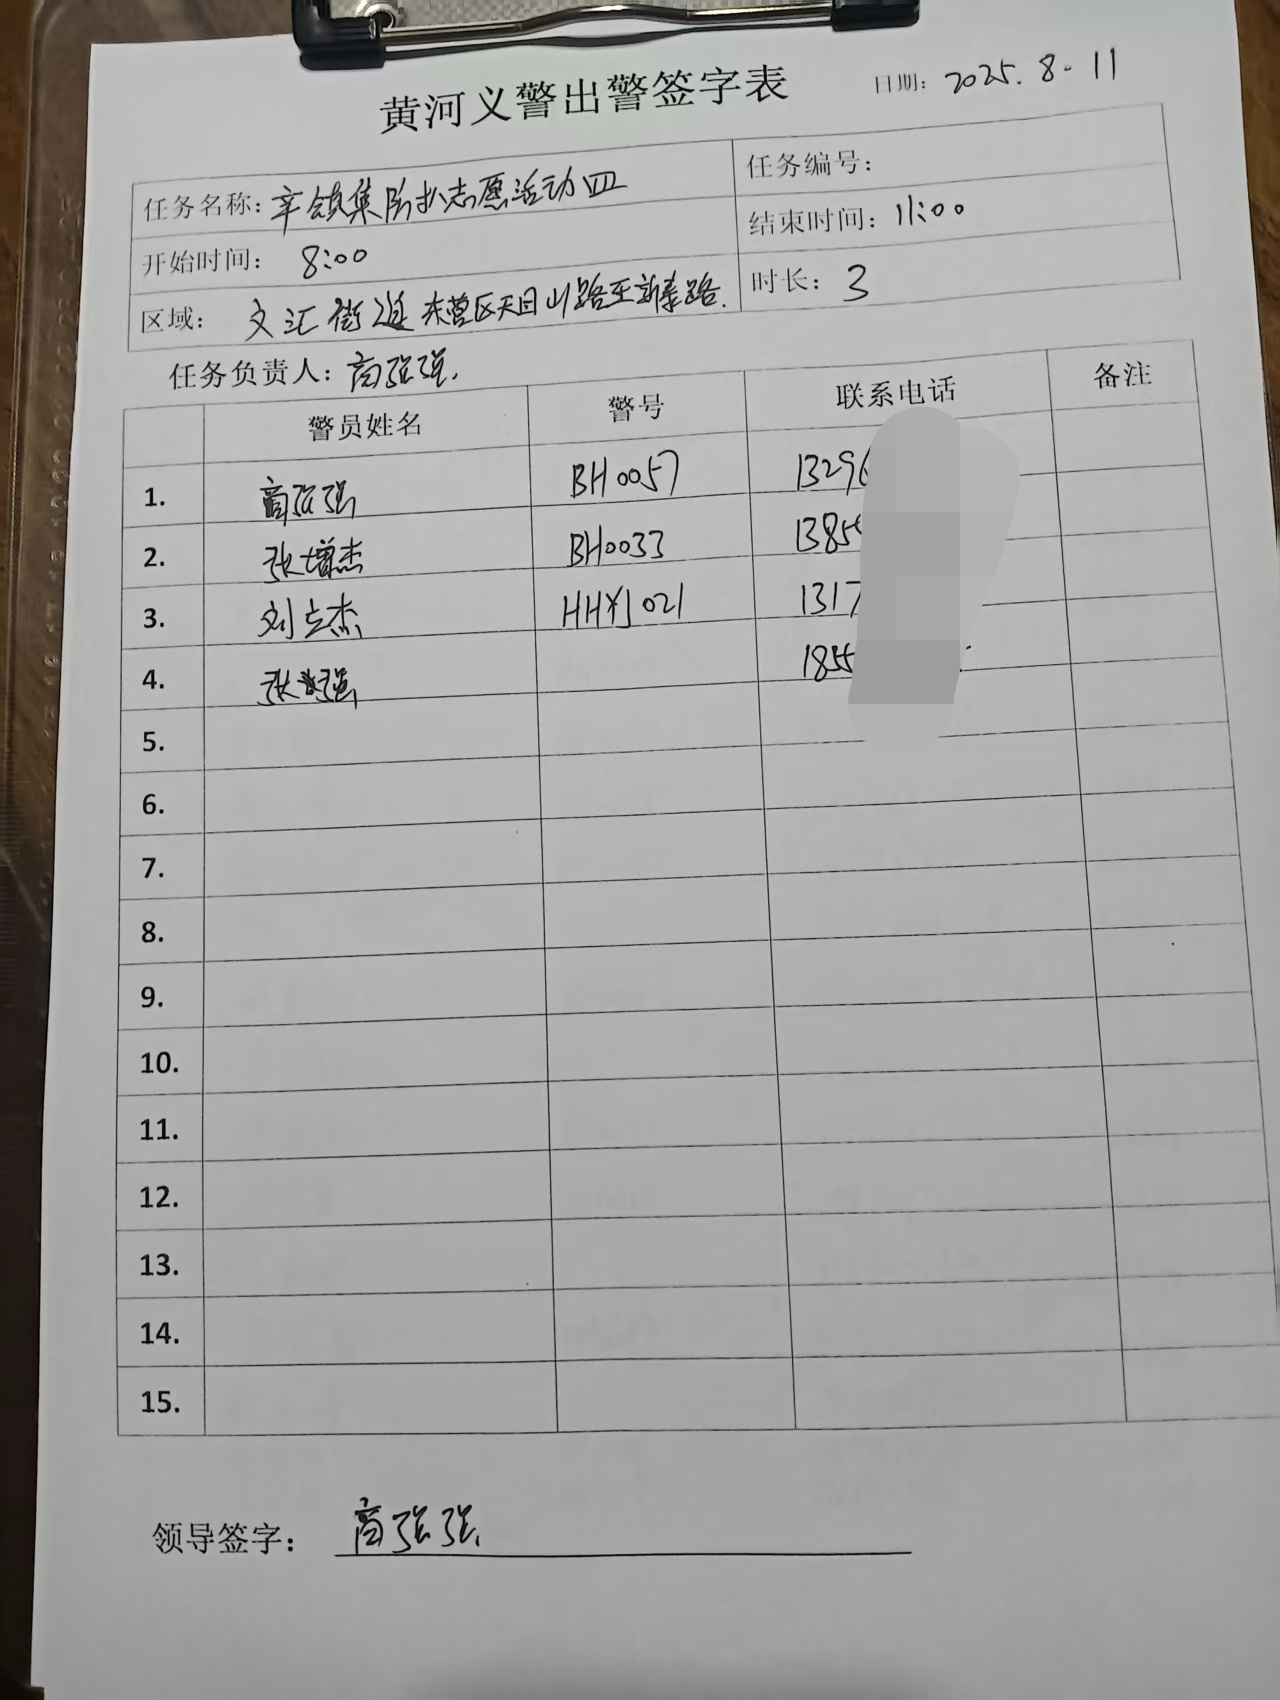 黄河义警出警签字表 日期: 2025.8.11
任务名称: 辛镇集防扒志愿活动四 任务编号:
开始时间: 8:00 结束时间: 11:00
区域: 文汇街道 东营区天目山路至新泰路. 时长: 3
任务负责人: 高强强.
警员姓名 警号 联系电话 备注
1. 高强强 BH0057 13296
2. 张增杰 BH0033 1385
3. 刘立杰 HHYJ021 1317
4. 张 强 1855
5.
6.
7.
8.
9.
10.
11.
12.
13.
14.
15.
领导签字: 高强强